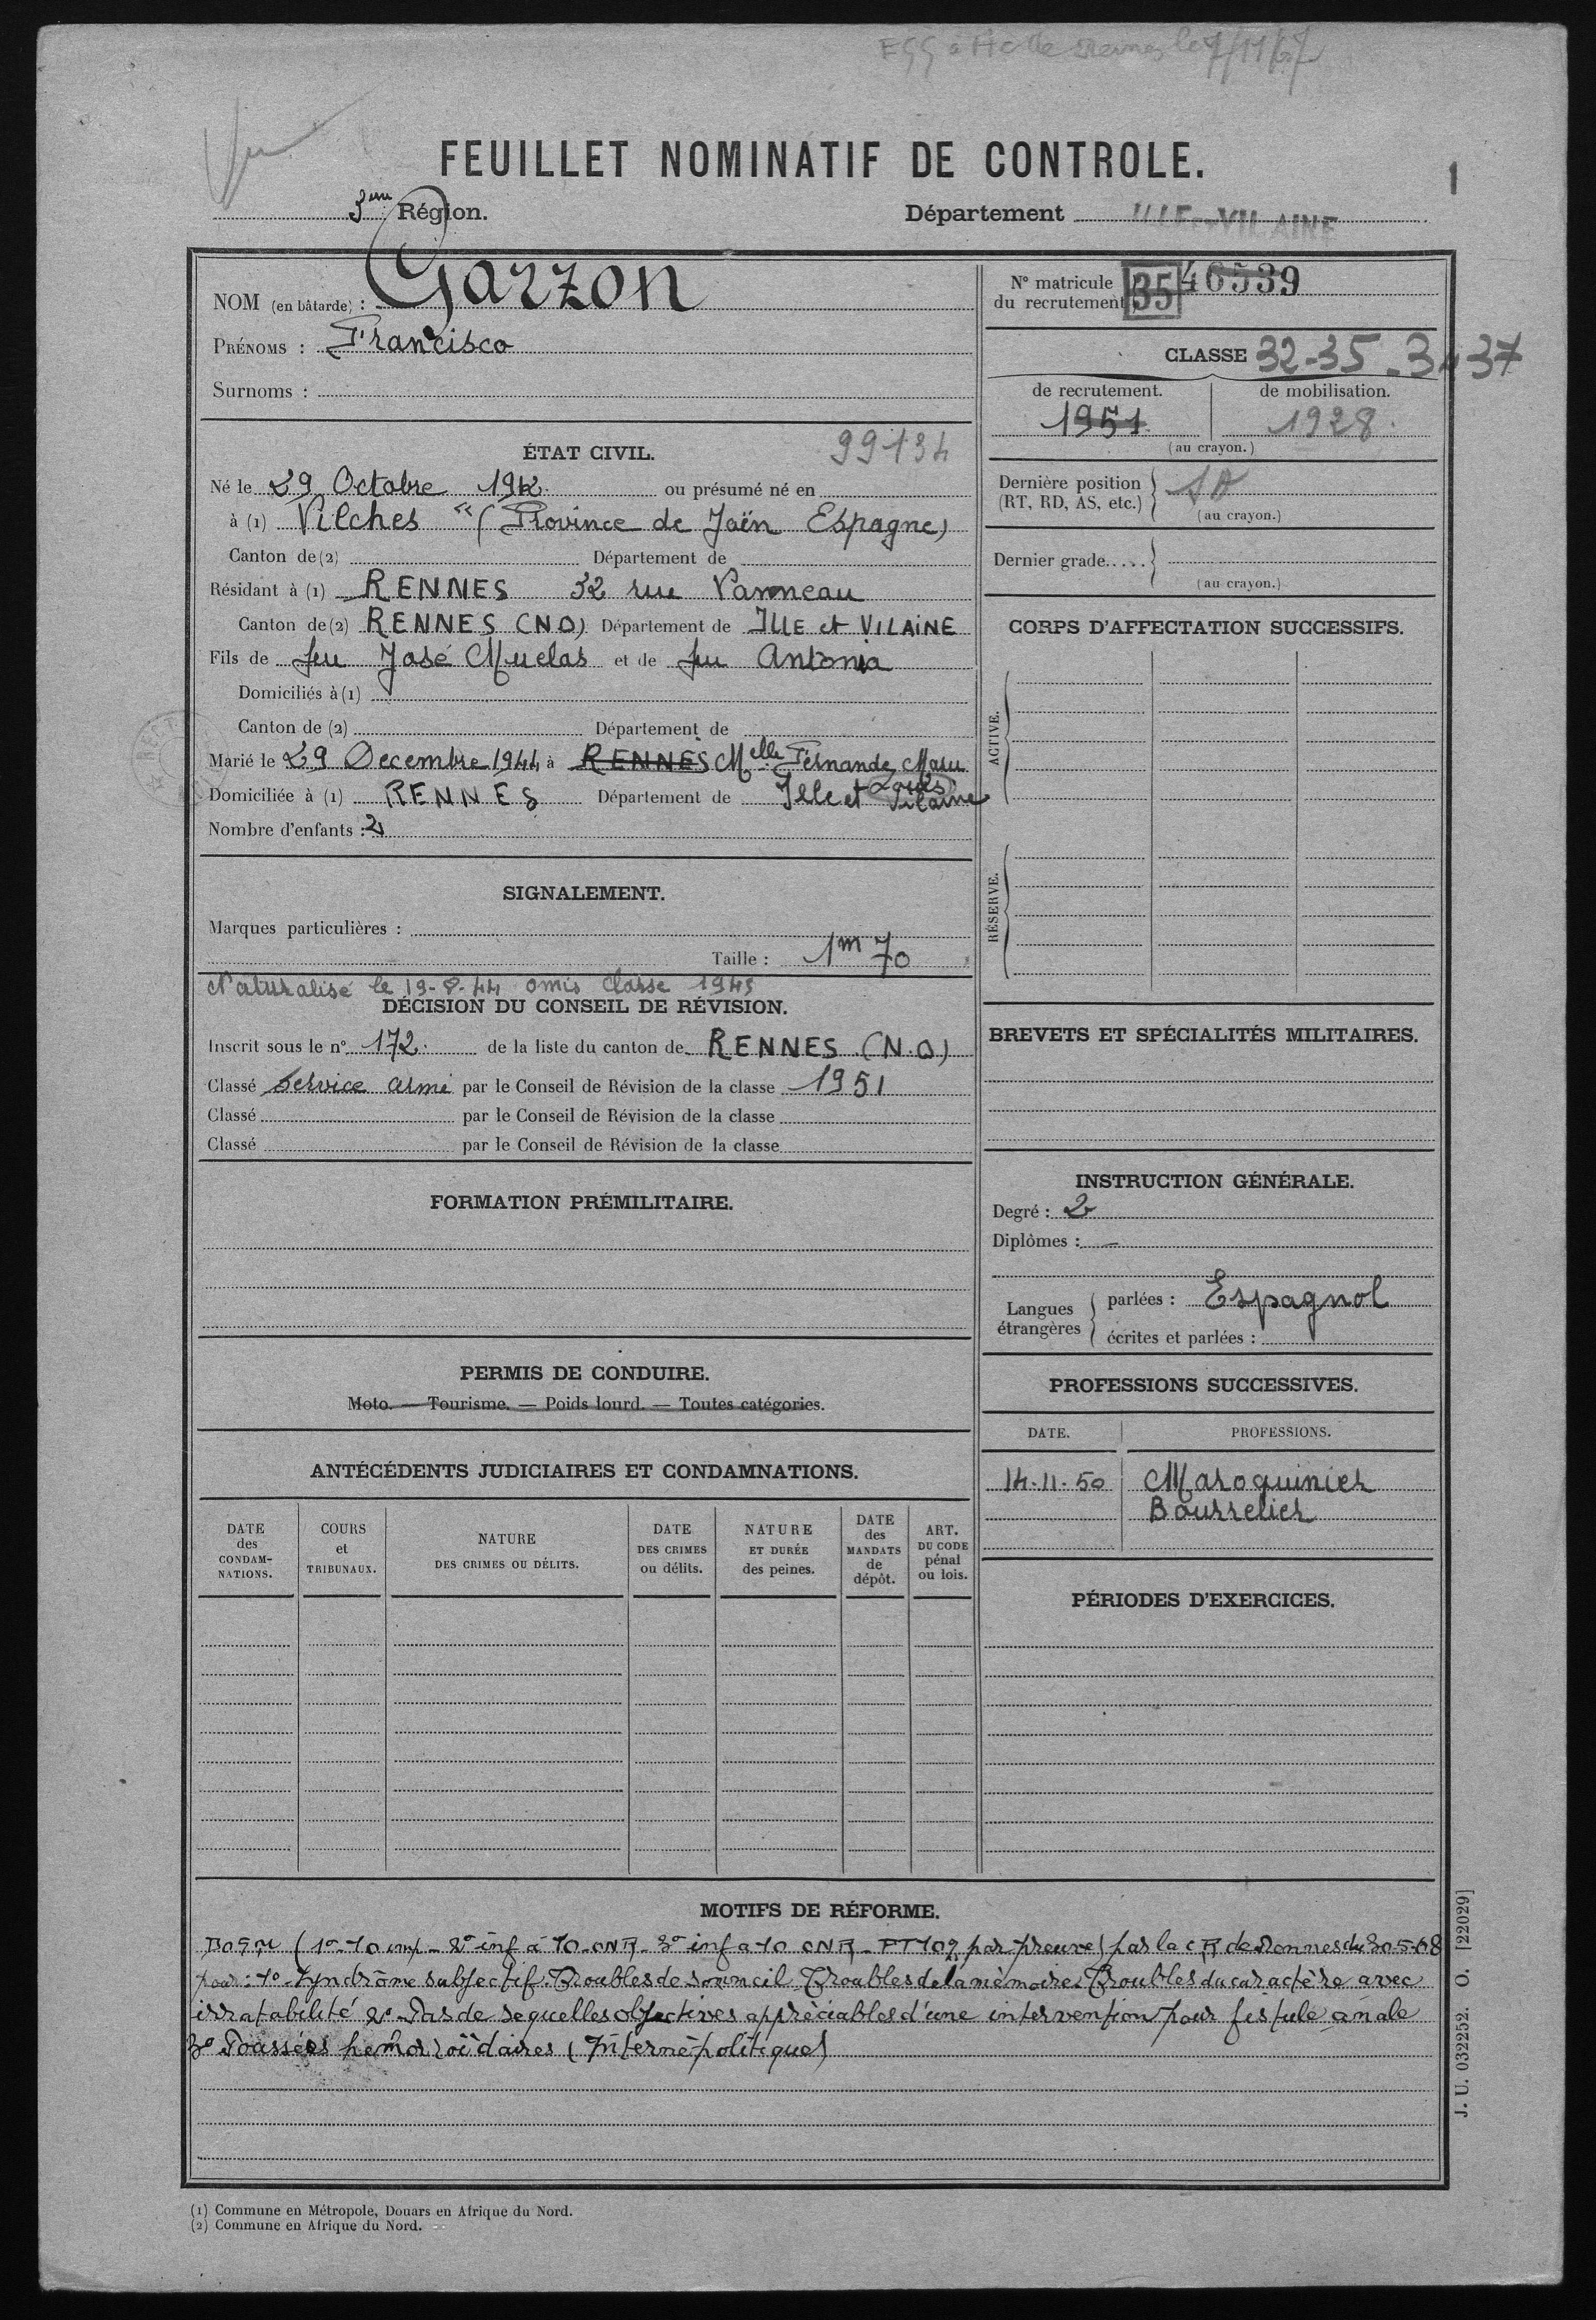 le 7/11/67
Vu
FEUILLET NOMINATIF DE CONTROLE.
1
3eme Région.
Département ILLE-et-VILAINE
NOM (en bâtarde) : Garzon
PRÉNOMS : Francisco
Surnoms :
ÉTAT CIVIL.
99134
Né le 29 Octobre 1912 ou présumé né en
à (1) Vilches "(Province de Jaën Espagne)
Canton de (2) Département de
Résidant à (1) RENNES 32 rue Vanneau
Canton de (2) RENNES (NO) Département de ILLE et VILAINE
Fils de feu José Muelas et de feu Antonia
Domiciliés à (1)
Canton de (2) Département de
Marié le 29 Decembre 1944 à RENNES Melle Fernande Marie
Louise
Domiciliée à (1) RENNES Département de Ille et Vilaine
Nombre d'enfants : 2
SIGNALEMENT.
Marques particulières :
Taille : 1m 70
Naturalisé le 19-8-44 omis classe 1945
DÉCISION DU CONSEIL DE RÉVISION.
Inscrit sous le n° 172. de la liste du canton de RENNES (N.O)
Classé Service armé par le Conseil de Révision de la classe 1951
Classé par le Conseil de Révision de la classe
Classé par le Conseil de Révision de la classe
FORMATION PRÉMILITAIRE.
PERMIS DE CONDUIRE.
Moto. — Tourisme. — Poids lourd. — Toutes catégories.
ANTÉCÉDENTS JUDICIAIRES ET CONDAMNATIONS.
DATE des CONDAM-NATIONS.
COURS et TRIBUNAUX.
NATURE DES CRIMES OU DÉLITS.
DATE DES CRIMES ou délits.
NATURE ET DURÉE des peines.
DATE des MANDATS de dépôt.
ART. DU CODE pénal ou lois.
N° matricule du recrutement 35 46539
CLASSE 32-35 37
de recrutement. de mobilisation.
1951 1928.
(au crayon.)
Dernière position (RT, RD, AS, etc.) SA
(au crayon.)
Dernier grade.....
(au crayon.)
CORPS D'AFFECTATION SUCCESSIFS.
ACTIVE.
RÉSERVE.
BREVETS ET SPÉCIALITÉS MILITAIRES.
INSTRUCTION GÉNÉRALE.
Degré : 2
Diplômes : —
Langues étrangères
parlées : Espagnol
écrites et parlées :
PROFESSIONS SUCCESSIVES.
DATE. PROFESSIONS.
14-11-50 Maroquinier
Bourrelier
PÉRIODES D'EXERCICES.
MOTIFS DE RÉFORME.
(1° - 10 - 2° inf à 10 - ONR - 3° inf a 10 ONR - PT 109 par preuve) par la CR de Rennes du 30-5-68
pour : 1° - Syndrôme subjectif. Troubles de sommeil Troubles de la mémoire. Troubles du caractère avec
irratabilité 2° - Pas de sequelles objectives appréciables d'une intervention pour fistule anale
3° Poussées hémorroïdaires (Interné politique)
J. U. 032252. O. [22029]
(1) Commune en Métropole, Douars en Afrique du Nord.
(2) Commune en Afrique du Nord.